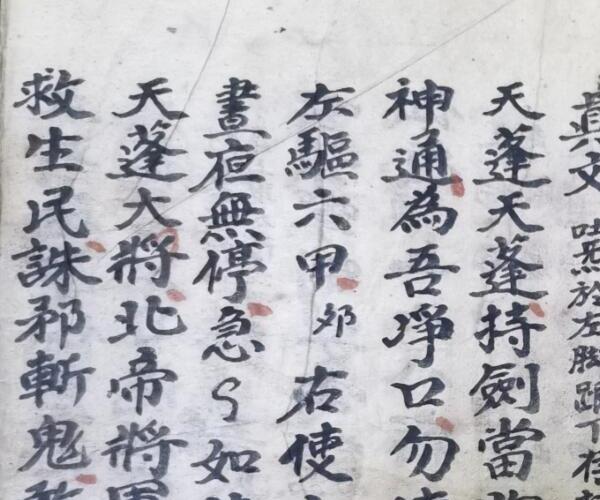 真文 吐炁於左脚跟下存
天蓬天蓬持劍當
神通為吾淨口勿
左驅六甲卯右使
晝夜無停急〻如
天蓬大將北帝將軍
救生民誅邪斬鬼